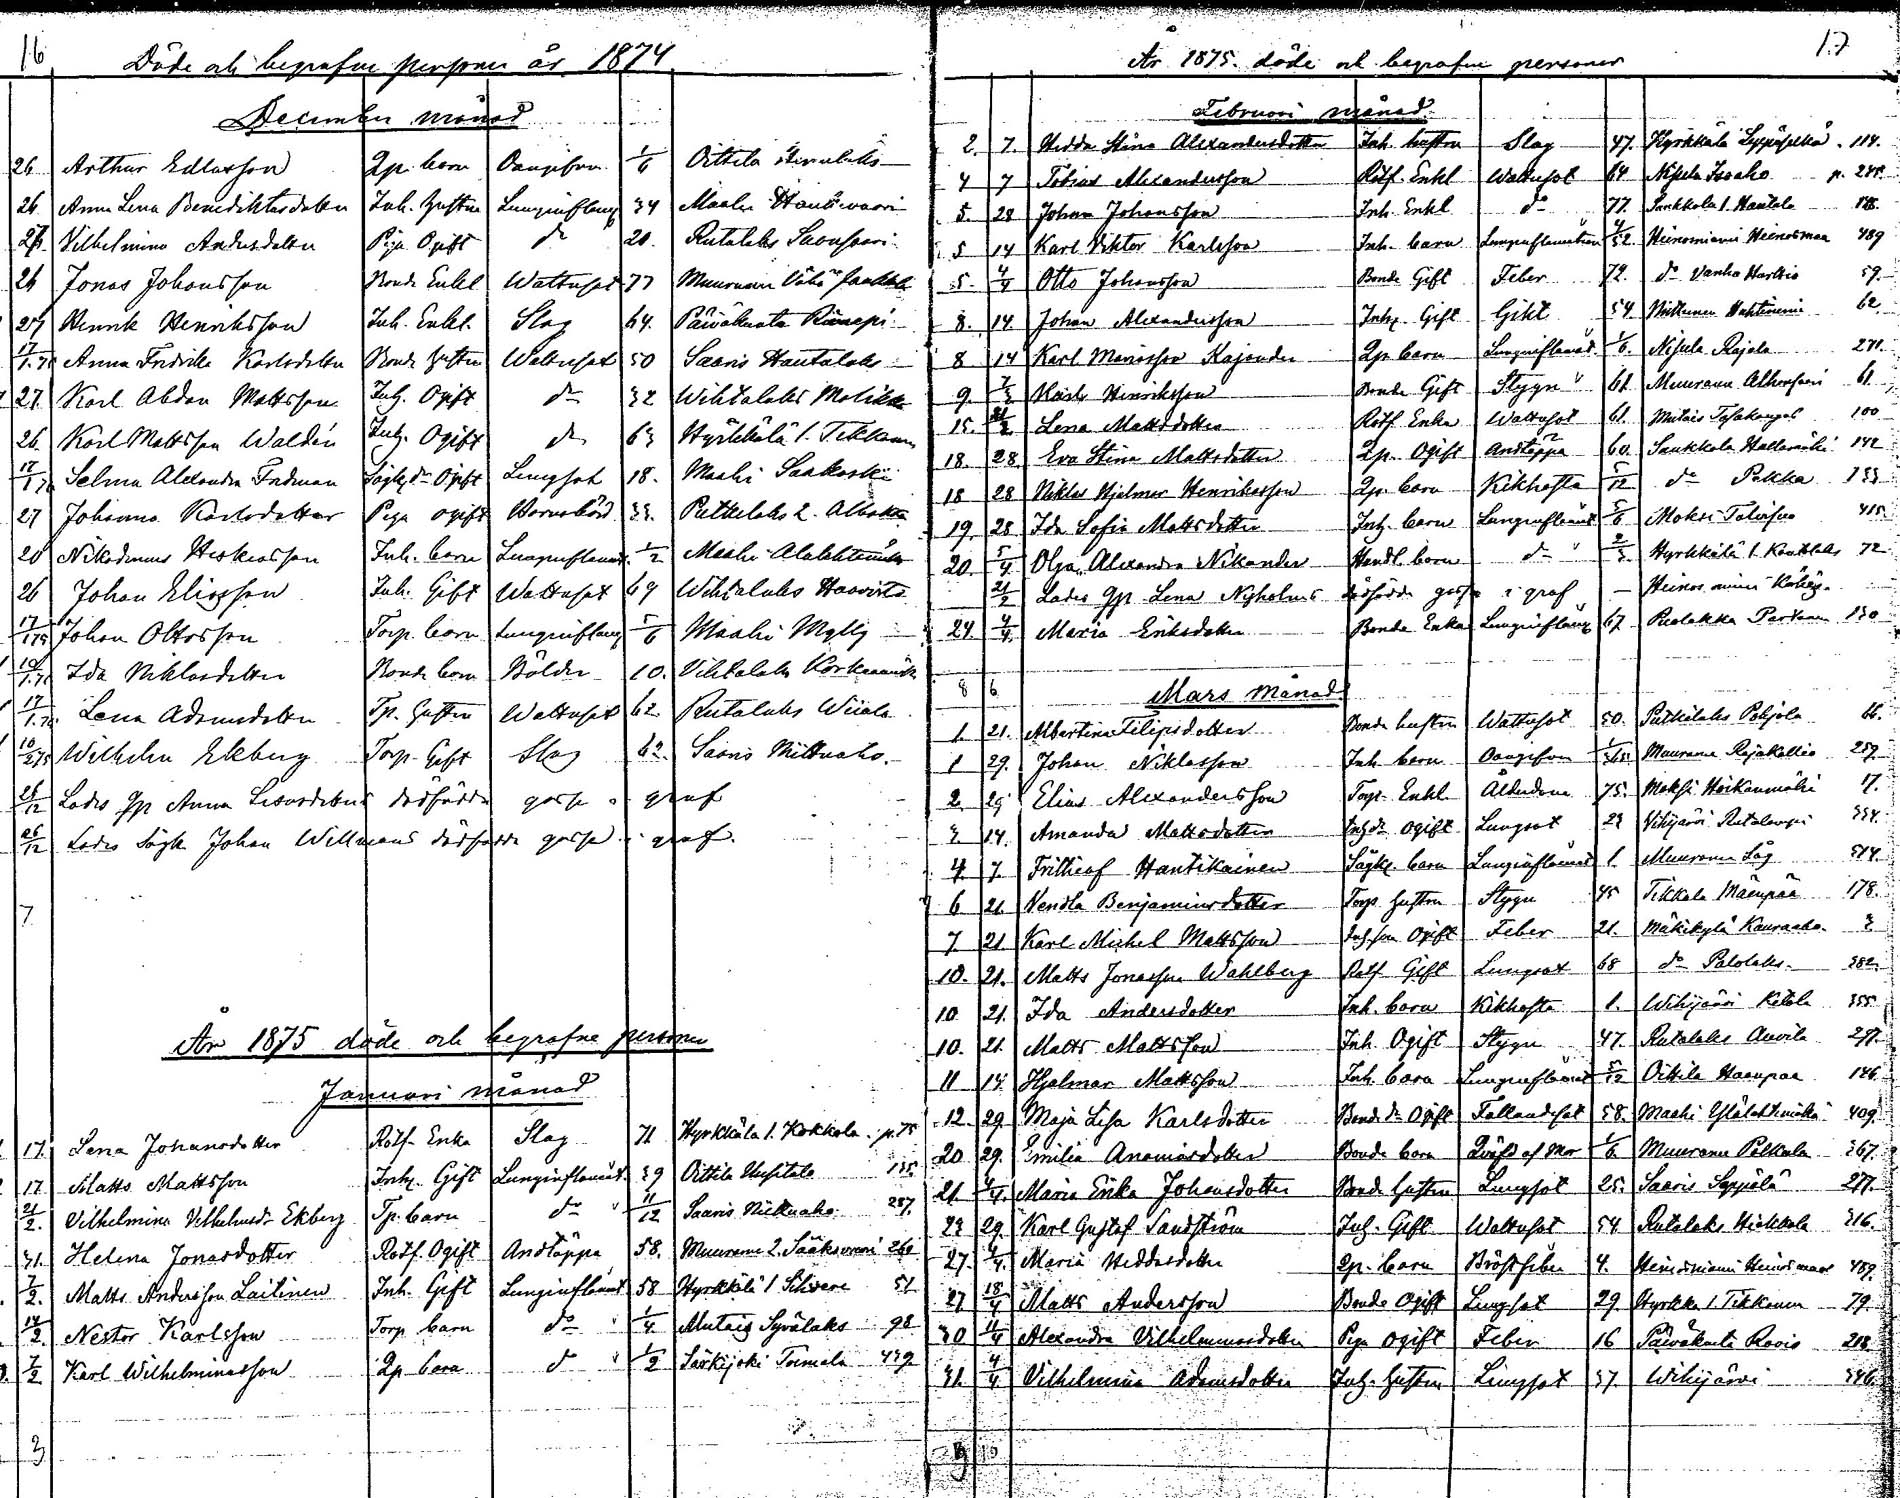 16
Döde och begrafne personer år 1874
December månad
26 Arthur Edlasson Qp. barn Oangifven 1/6 Oittila
26 Anna Lena Benediktsdotter Inh. Hustru Lunginflam 34 Maahi Hautavuori
27 Vilhelmina Andersdotter Piga Ogift do 20. Rutalaks
26 Jonas Johansson Bonde Enkl Wattusot 77 Muurame
27 Henrik Henriksson Inh. Enkl. Slag 64. Päiväkunta
17/1.75 Anna Fredrika Karlsdotter Bonde Hustru Wattusot 50 Saaris Hautalaks
27 Karl Abdon Mattsson Inh. Ogift do 32 Wihtalaks
26 Karl Mattsson Waldén Inh. Ogift do 63 Hyrkkälä 1. Tikkanen
17/1.75 Selma Alexandra Lungsot 18. Maahi Saukoski
27 Johanna Karlsdotter Piga ogift Barnsbörd 33. Putkilaks 2.
20 Nikodemus Inh. barn Lunginflamat. 1/2 Maahi
26 Johan Eliasson Inh. Gift Wattusot 69 Wihtalaks
17/1.75 Johan Ottosson Torp. barn Lunginflam 5/6 Maahi Mylly
10/1.75 Ida Niklasdotter Bonde barn Bölder 10. Vihtalaks
17/1.75 Lena Adamsdotter Tp. Hustru Wattusot 62 Rutalaks Wiiala
10/2.75 Wilhelm Ekberg Torp. Gift Slag 62. Saaris Mittuaho.
26/12 Lades Qp Anna dödfödda gosse i graf
26/12 Lades Sågk Johan Willmans dödfödda gosse i graf.
7
År 1875 döde och begrafne personer
Januari månad
17. Lena Johansdotter Rotf. Enka Slag 71 Hyrkkälä 1. Kokkola p. 75
17 Matts Mattsson Inh. Gift Lunginflamat. 39 Oittila Uusitalo 135
21/2. Vilhelmina Vilhelmsdr Ekberg Tp. barn do 11/12 Saaris Mittuaho 287.
31 Helena Jonasdotter Rotf. Ogift Andtäppa 58. Muurame 2. Sääksvuori 260
7/2. Matts Andersson Laitinen Inh. Gift Lunginflamat 58 Hyrkkälä 1 51
14/2. Nestor Karlsson Torp barn do 1/4 Mutais Syvälaks 98
7/2 Karl Wilhelminasson Qp barn do 1/2 Särkijoki Toimela 439
3
17
År 1875. döde och begrafne personer
Februari månad.
2. 7. Hedda Stina Alexandersdotter Inh. hustru Slag 47. Hyrkkälä 114.
4 7 Tobias Alexandersson Rotf. Enkl Wattusot 64 Nisula Isoaho p. 245.
5. 28 Johan Johansson Inh. Enkl do 77. Saukkola 1. Hautala
5 14 Karl Viktor Karlsson Inh. barn Lunginflamation 4/52. Heinosniemi Heinosmaa 489
5. 4/4 Otto Johansson Bonde Gift Feber 72. do Vanha Harkio 59.
8. 14 Johan Alexandersson Inh. Gift Gikt 54 62
8 14 Karl Mariasson Kajander Qp barn Lunginflamat 1/6. Nisula Rajala 271.
9. 7/3 Karl Henriksson Bonde Gift Styyn 61. Muurame 61
15. 21/2 Lena Mattsdotter Rotf. Enka Wattusot 61. Mutais 100
18. 28 Eva Stina Mattsdotter Qp. Ogift andtäppa 60. Saukkola
18 28 Niklas Hjalmar Henriksson Qp. barn Kikhosta 5/12 do Pekka 133
19. 28 Ida Sofia Mattsdotter Inh. barn Lunginflamat 5/6 Moksi
20. 5/4 Olga Alexandra Nikander Handl. barn do 2/3 Hyrkkälä 1. 72
21/2 Lades Qp Lena Nyholms dödfödda gosse i graf — Heinosniemi
24 4/4. Maria Eriksdotter Bonde Enka Lunginflam 67 Ruolakka Partanen 130
8 6
Mars månad.
1. 21. Albertina Filipsdotter Bonde hustru Wattusot 50. Putkilaks Pohjola 66.
1 29. Johan Niklasson Inh barn Oangifven 1/365 Muurame Rajakallio 259.
2. 29 Elias Alexandersson Torp. Enkl Ålderdom 75. Moksi Heikanmäki 17.
3. 14. Amanda Mattsdotter Inh. dr ogift Lungsot 23 Vihijärvi 334.
4. 7. Frithiof Hantikainen Sågk. barn Lunginflamat 1. Muurame Såg 514.
6 21. Vendla Benjaminsdotter Torp. hustru Styyn 45 Tikkala Mäenpää 178.
7. 21 Karl Michel Mattsson Inh. son Ogift Feber 21. Mäkikylä Kauraaho.
10. 21. Matts Jonasson Wahlberg Rotf Gift Lungsot 68 do Palolaks. 382.
10. 21. Ida Andersdotter Inh. barn Kikhosta 1. Wihijärvi Ketola 355
10. 21. Matts Mattsson Inh. Ogift Styyn 47. Rutalaks Auvila 297.
11 14. Hjalmar Mattsson Inh. barn Lunginflamat 5/12 Oittila Haanpaa 146
12. 29. Maja Lisa Karlsdotter Bonde dr Ogift Fallandesot 58. Maahi 409.
20 29. Emilia Ananiasdotter Bonde barn Qväfd af Mor 1/6 Muurame Pelkala 267.
21. 4/4. Maria Erika Johansdotter Bond. hustru Lungsot 25. Saaris Seppälä 277.
23 29. Karl Gustaf Sandström Inh. Gift Wattusot 54 Rutalaks Hiekkala 316.
27. 4/4. Maria Heddasdotter Qp. barn Bröstfeber 4. Heinosniemi Heinosmaa 489.
27 18/4 Matts Andersson Bonde Ogift Lungsot 29. Hyrkkä 1. Tikkanen 79.
30 11/4 Alexandra Vilhelminasdotter Piga ogift Feber 16 Päiväkunta 218
31. 4/4 Vilhelmina Adamsdotter Inh. hustru Lungsot 37. Wihijärvi 346.